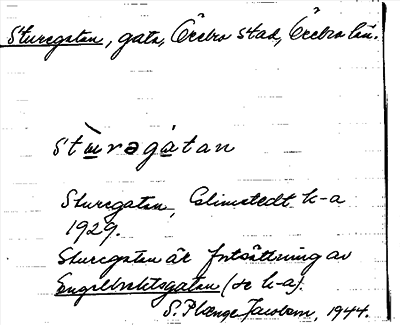 Sturegatan, gata, Örebro stad, Örebro län.
stùregátan
Sturegatan, Elimstedt k-a
1929.
Sturegatan är fortsättning av
Engelbrektsgatan (se k-a).
S. Jacobson, 1944.